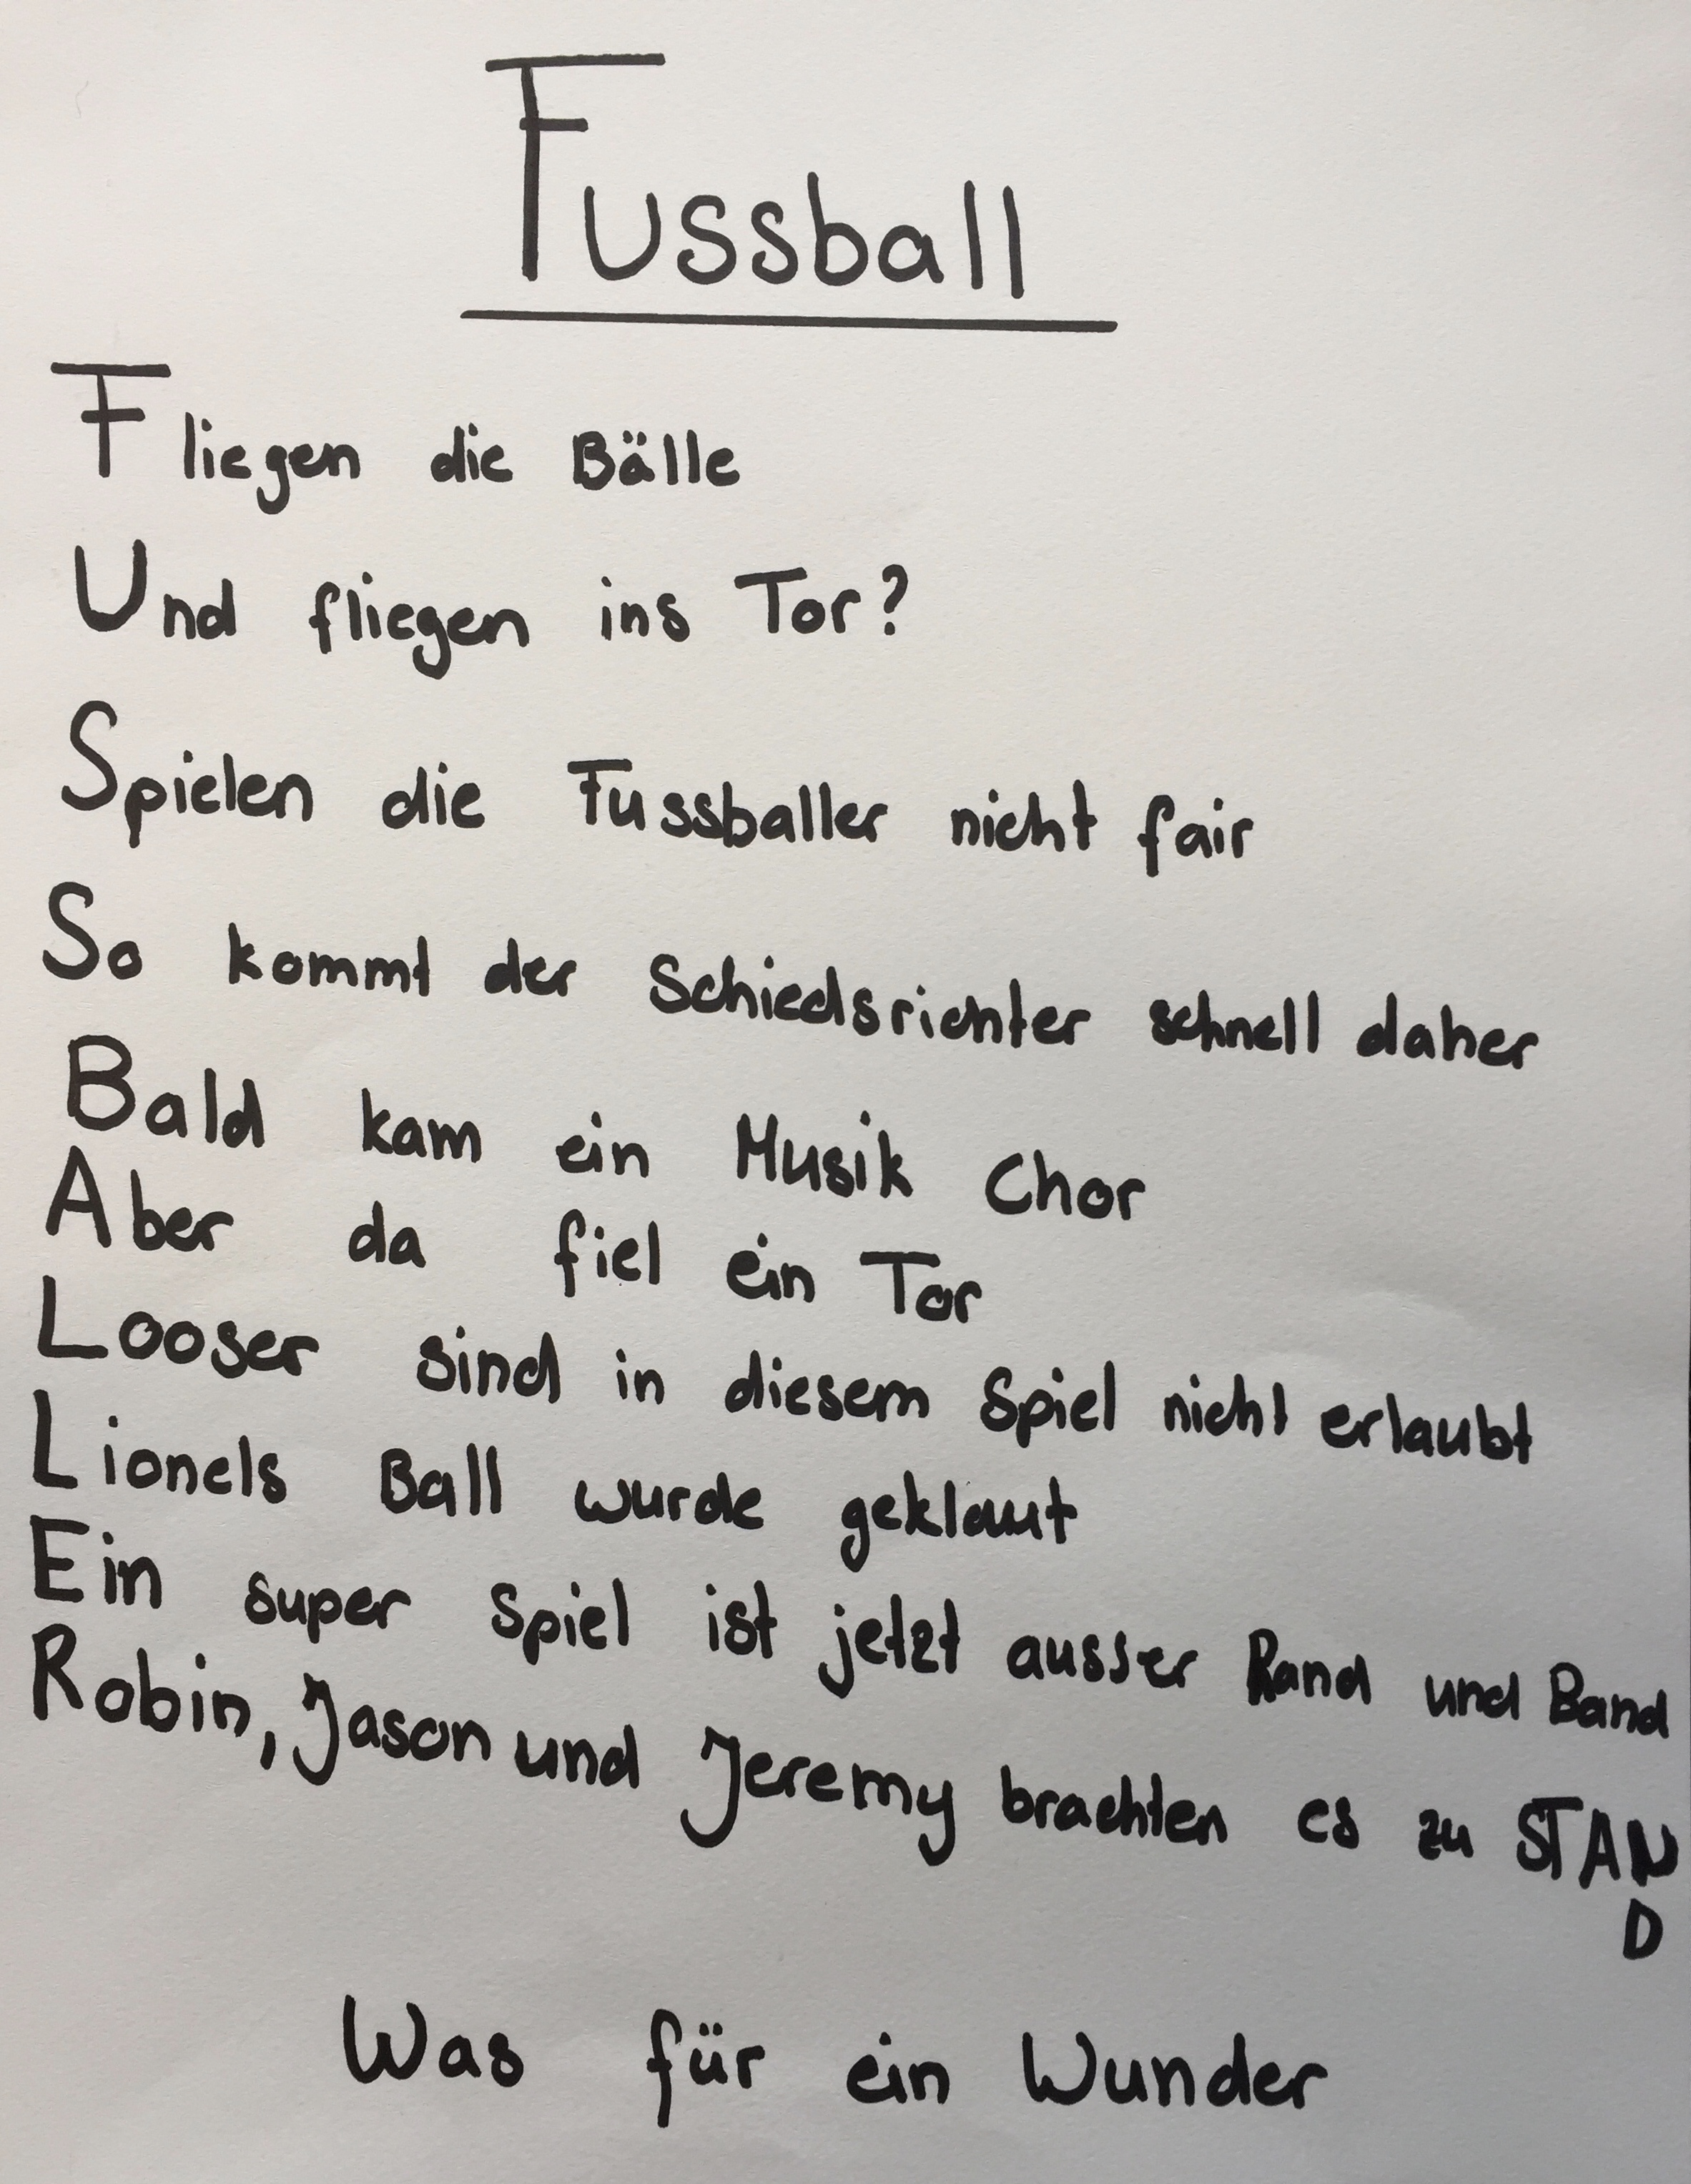 Fussball
Fliegen die Bälle
Und fliegen ins Tor?
Spielen die Fussballer nicht fair
So kommt der Schiedsrichter schnell daher
Bald kam ein Musik Chor
Aber da fiel ein Tor
Looser sind in diesem Spiel nicht erlaubt
Lionels Ball wurde geklaut
Ein super Spiel ist jetzt ausser Rand und Band
Robin, Jason und Jeremy brachten es zu STAN
D
Was für ein Wunder